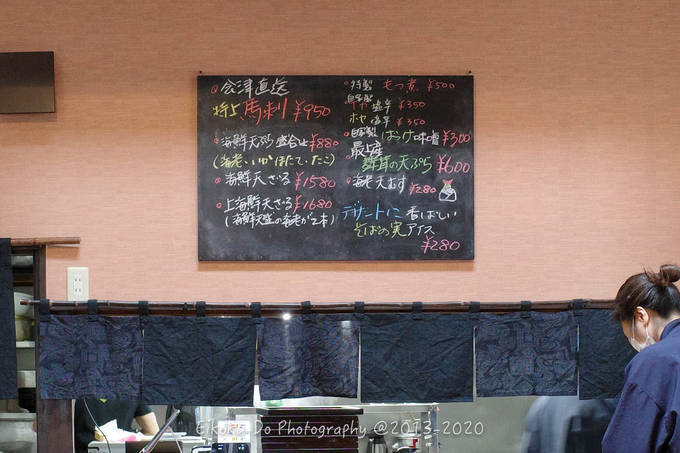 会津直送
特上 馬刺 ¥950
海鮮天ぷら盛合せ ¥880
(海老、いか、ほたて、たこ)
海鮮天ざる ¥1580
上海鮮天ざる ¥1680
(海鮮天盛の海老が2本)
特製 もつ煮 ¥500
自家製
塩辛 ¥350
ホヤ 塩辛 ¥350
自家製 ばっけ味噌 ¥300
最上産
舞茸の天ぷら ¥600
海老天むす ¥280
デザートに 香ばしい
そばの実アイス
¥280
Eiko's Do Photography @2013-2020